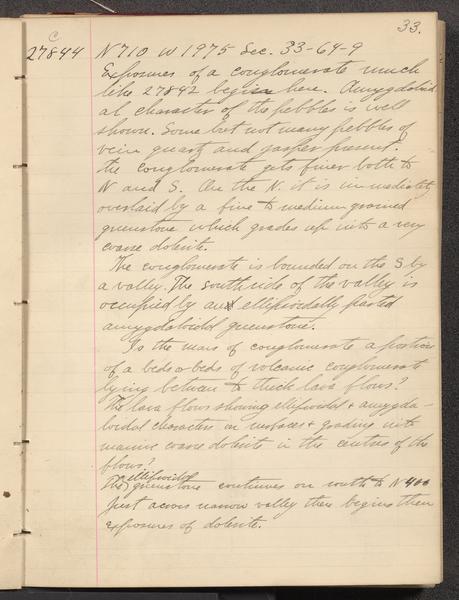 33.
C
27844 N 710 W 1975 Sec. 33-64-9
Exposures of a conglomerate much
like 27842 begin here. Amygdaloid
al character of the pebbles is well
shown. Some but not many pebbles of
vein quartz and jasper present.
The conglomerate gets finer both to
N and S. On the N. it is immediately
overlaid by a fine to medium grained
greenstone which grades up into a very
coarse dolerite.
The conglomerate is bounded on the S by
a valley. The south side of the valley is
occupied by an ellipsoidally parted
amygdaloidal greenstone.
Is the mass of conglomerate a portion
of a bed or beds of volcanic conglomerate
lying between to thick lava flows?
The lava flows showing ellipsoidal & amygda-
loidal characters on surfaces & grading into
massive coarse dolerite in the centres of the
flows?
ellipsoidal
The greenstone continues on south to N 400
Just across narrow valley there begins then
exposures of dolerite.